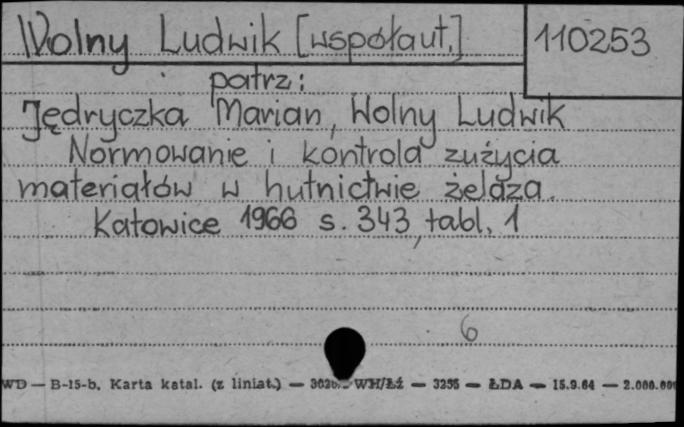 Wolny Ludwik [współaut.] 110253
patrz:
Jędryczka Marian, Wolny Ludwik
Normowanie i kontrola zużycia
materiałów w hutnictwie żelaza.
Katowice 1966 s. 343, tabl. 1
6
WD — B-15-b. Karta katal. (z liniat.) — WH/Łź — 3255 — ŁDA — 15.9.64 — 2.000.000